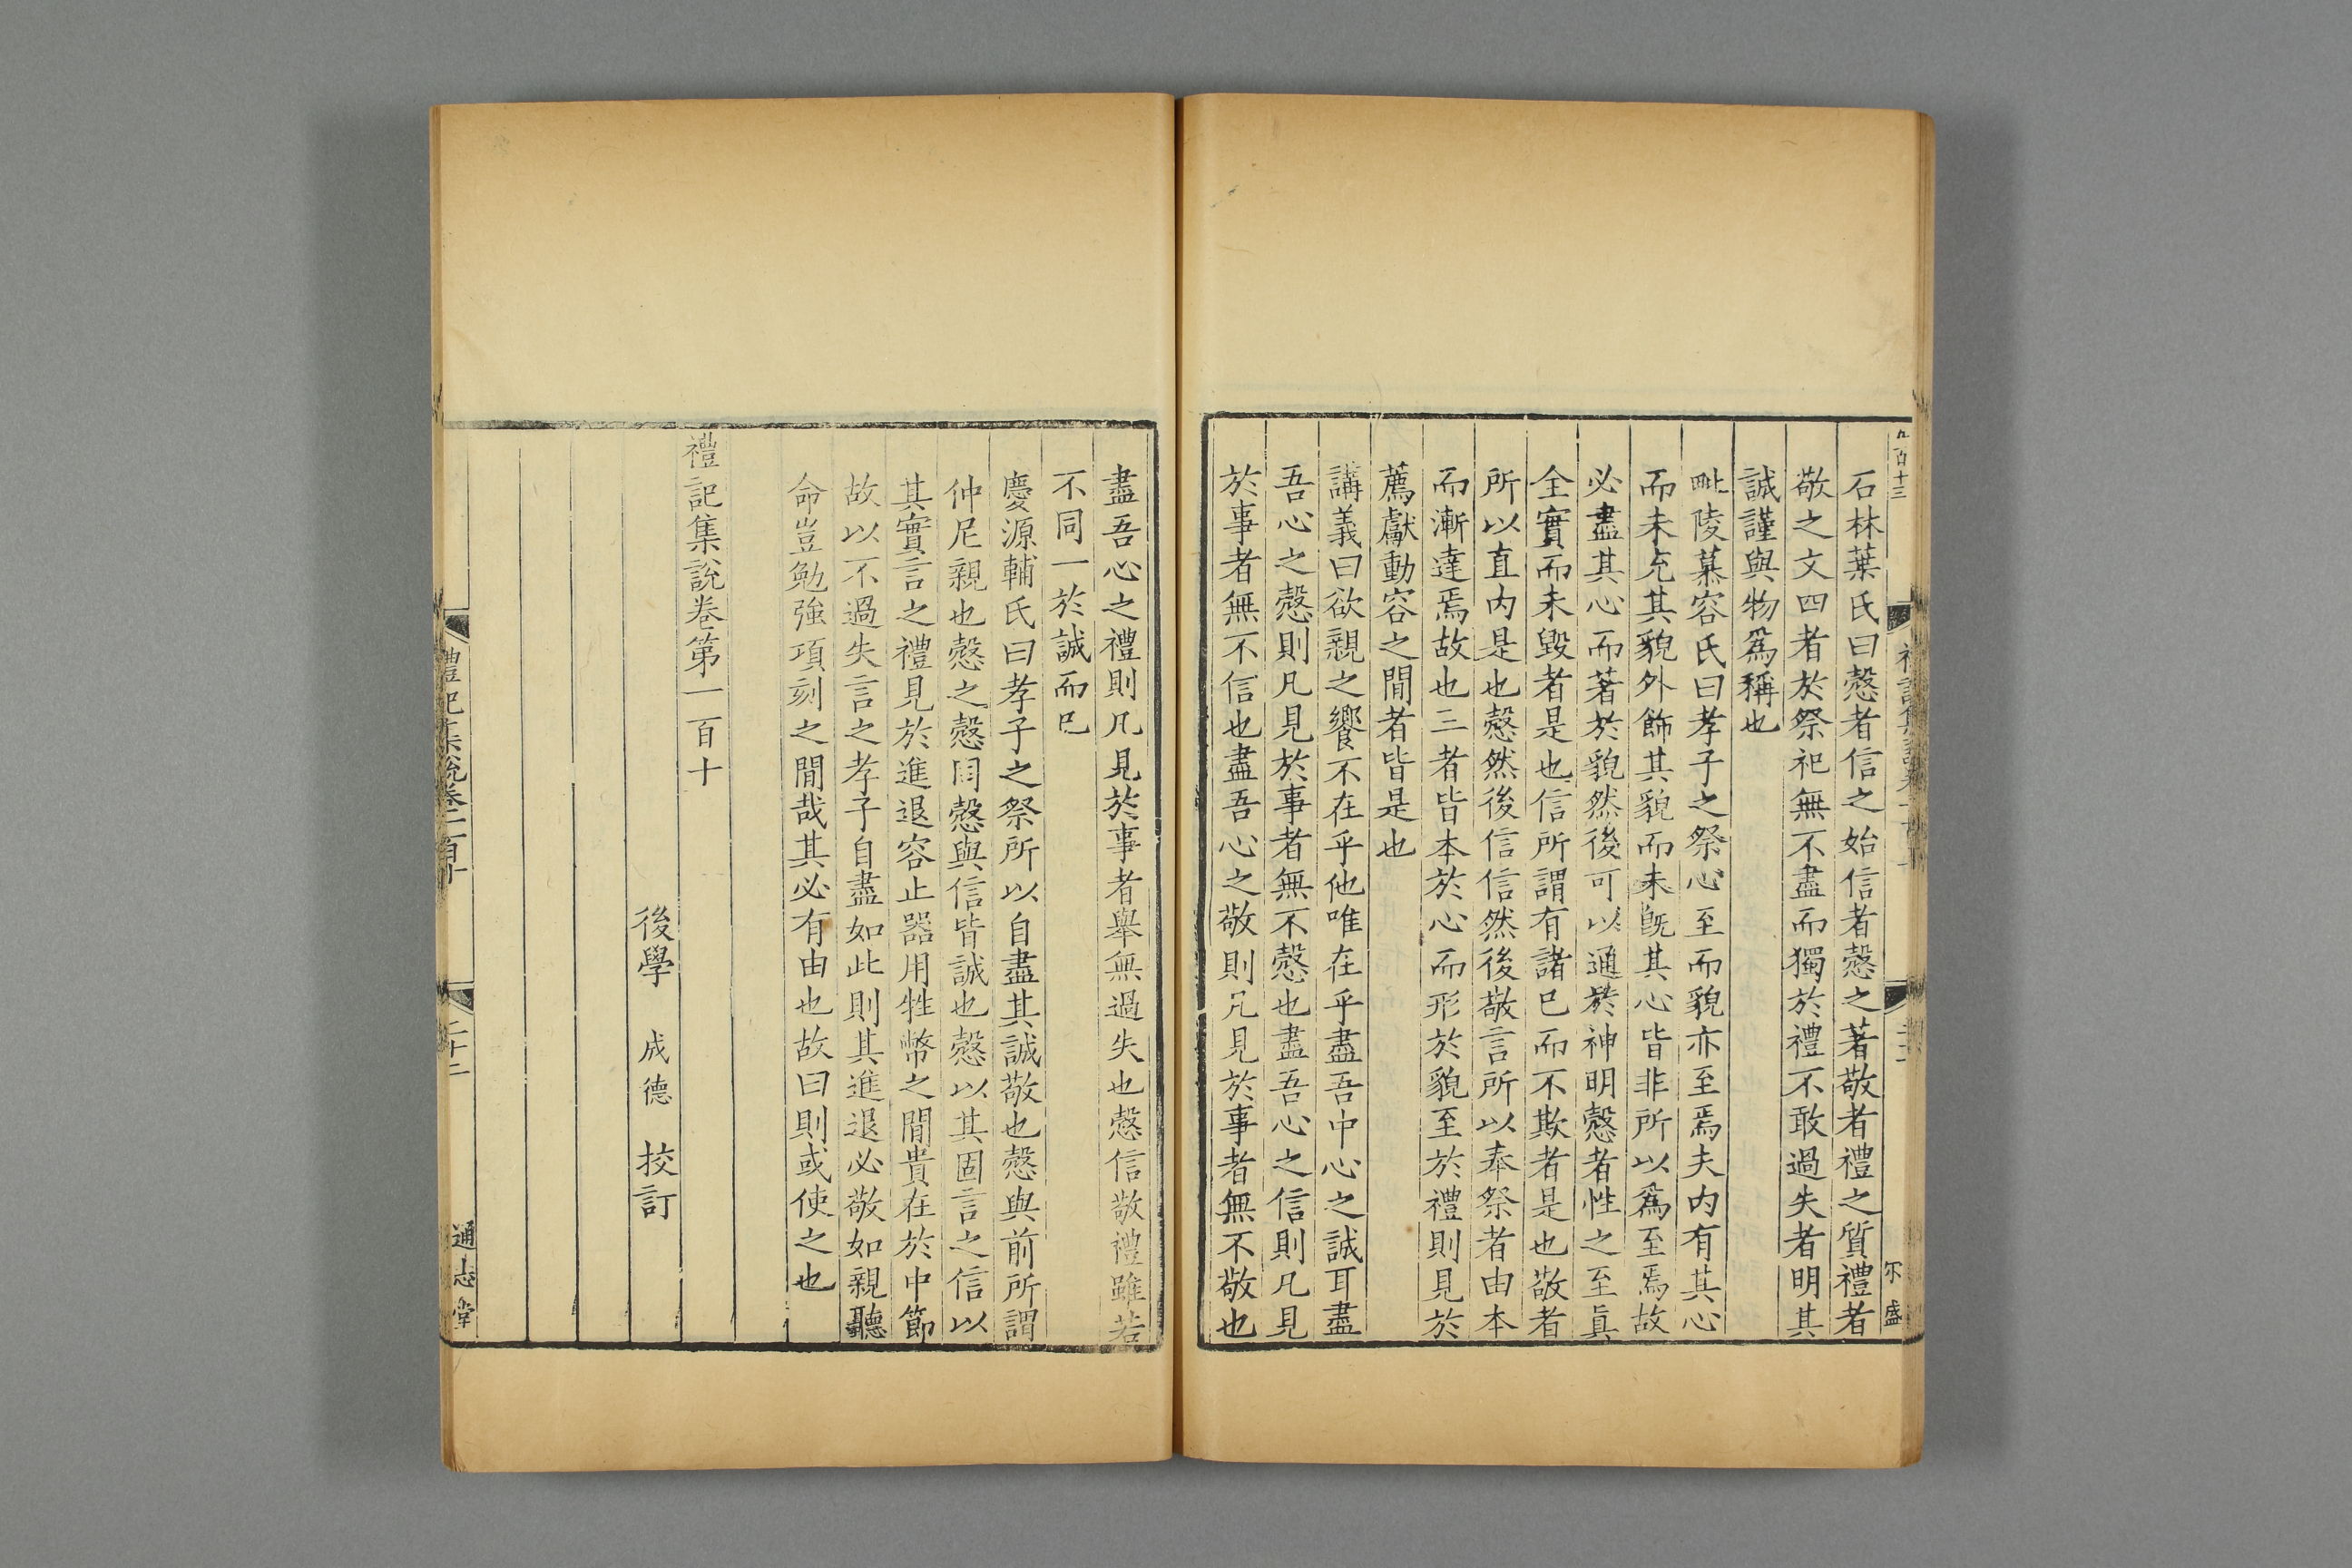 石林葉氏曰慤者信之始信者慤之著敬者禮之質禮者
敬之文四者於祭祀無不盡而獨於禮不敢過失者明其
誠謹與物爲稱也
毗陵慕容氏曰孝子之祭心至而貌亦至焉夫内有其心
而未充其貌外飾其貌而未旣其心皆非所以爲至焉故
必盡其心而著於貌然後可以通於神明慤者性之至眞
全實而未毀者是也信所謂有諸已而不欺者是也敬者
所以直内是也慤然後信信然後敬言所以奉祭者由本
而漸達焉故也三者皆本於心而形於貌至於禮則見於
薦獻動容之間者皆是也
講義曰欲親之饗不在乎他唯在乎盡吾中心之誠耳盡
吾心之慤則凡見於事者無不慤也盡吾心之信則凡見
於事者無不信也盡吾心之敬則凡見於事者無不敬也
盡吾心之禮則凡見於事者舉無過失也慤信敬禮雖若
不同一於誠而已
慶源輔氏曰孝子之祭所以自盡其誠敬也慤與前所謂
仲尼親也慤之慤同慤與信皆誠也慤以其固言之信以
其實言之禮見於進退容止器用牲幣之間貴在於中節
故以不過失言之孝子自盡如此則其進退必敬如親聽
命豈勉強項刻之間哉其必有由也故曰則或使之也
禮記集說卷第一百十
後學 成德 挍訂
禮記集說卷一百十
二十二
通志堂